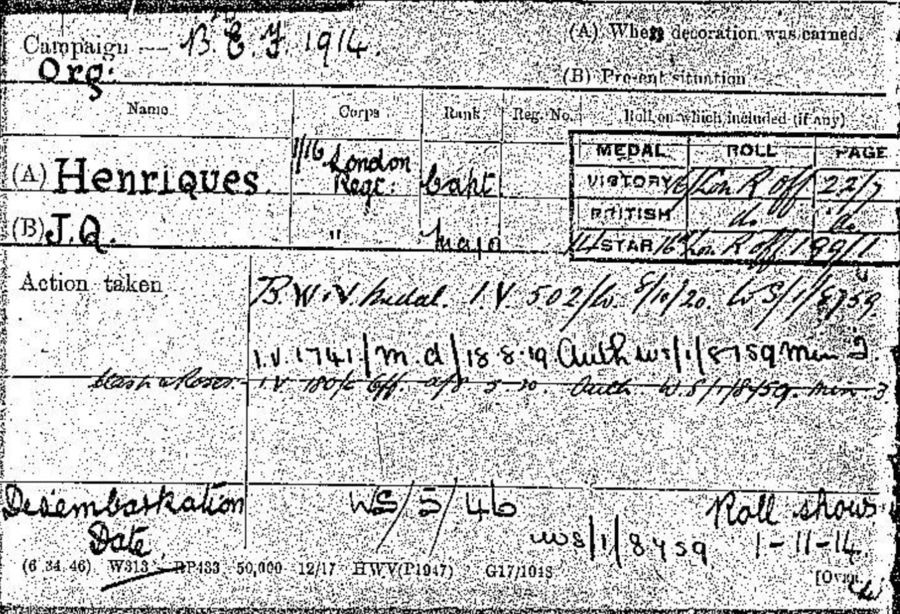 Campaign — B.E.F. 1914.
(A) Where decoration was earned.
Org.
(B) Present situation
Name Corps Rank Reg. No. Roll on which included (if any)
MEDAL ROLL PAGE
(A) Henriques. 1/16 London Regt. Capt
VICTORY Lon R Off 22/7
BRITISH do. do
(B) J.Q. " Major
14 STAR 16 Lon R Off 199/1
Action taken
B.W.V Medal. I.V. 502/W. 5/10/20. WS/1/8759.
I.V. 1741/m.d/18.8.19 Auth WS/1/8759 Min 2.
Clasp & Roses - I.V. Auth. W.S/1/8459. Min 3
Disembarkation WS/5/46 Roll shows
Date WS/1/8459 1-11-14.
(6 34 46) W313—RP433 50,000 12/17 HWV(P1947) G17/1048 [Over.